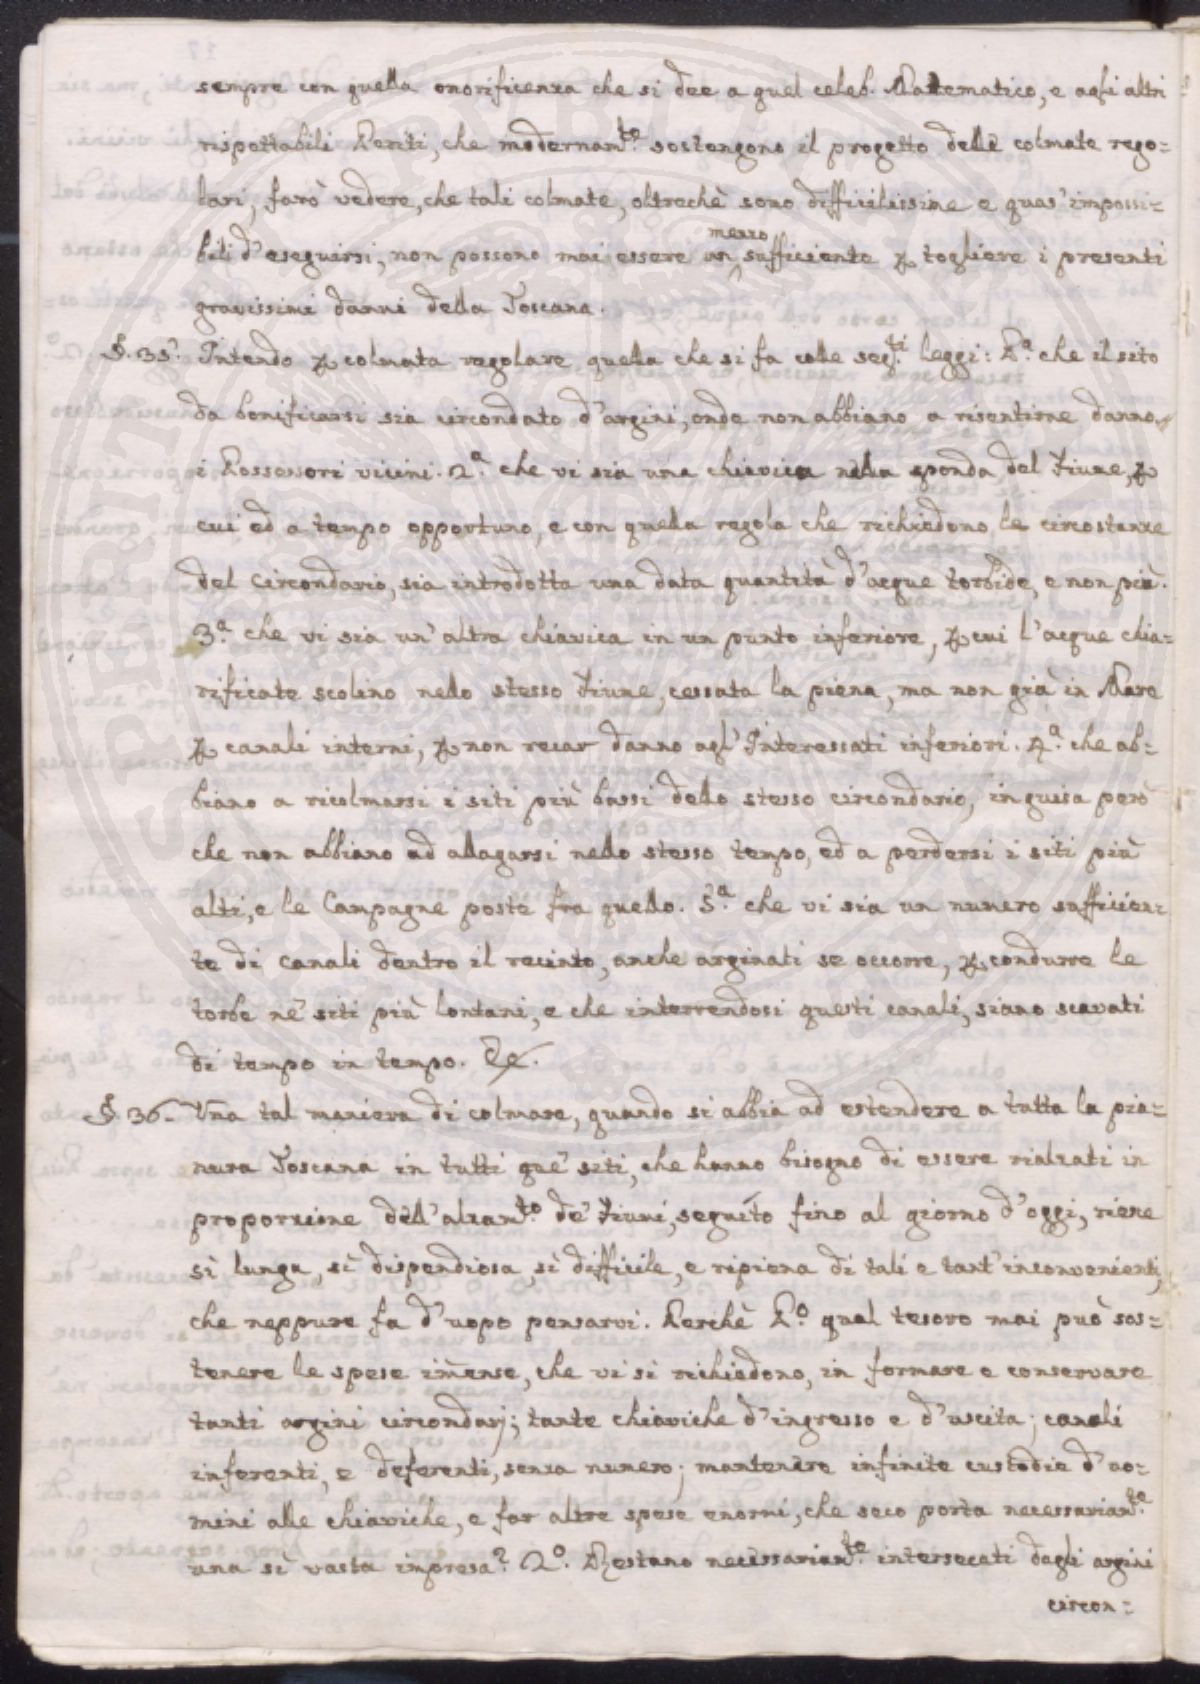 sempre con quella onorificenza che si dee a quel celeb. Matematico, e agli altri
rispettabili Periti, che modernam.te sostengono il progetto delle colmate rego=
lari, farò vedere, che tali colmate, oltrechè sono difficilissime e quas'impossi=
bili d'eseguirsi, non possono mai essere un mezzo sufficiente p togliere i presenti
gravissimi danni della Toscana.
§. 35. Intendo p colmata regolare quella che si fa colle seg.ti leggi: P.a che il sito
da bonificarsi sia circondato d'argini, onde non abbiano a risentirne danno
i Possessori vicini. 2.a che vi sia una chiavica nella sponda del Fiume, p
cui ed a tempo opportuno, e con quella regola che richiedono le circostanze
del Circondario, sia introdotta una data quantità d'acque torbide, e non più.
3.a che vi sia un'altra chiavica in un punto inferiore, p cui l'acque chia=
rificate scolino nello stesso Fiume, cessata la piena, ma non già in Mare
p canali interni, p non recar danno agl'Interessati inferiori. 4.a che ab=
biano a ricolmarsi i siti più bassi dello stesso circondario, in guisa però
che non abbiano ad allagarsi nello stesso tempo, ed a perdersi i siti più
alti, e le Campagne poste fra quello. 5.a che vi sia un numero sufficien=
te di canali dentro il recinto, anche arginati se occorre, p condurre le
torbe ne' siti più lontani, e che interrendosi questi canali, siano scavati
di tempo in tempo. &c.
§. 36. Una tal maniera di colmare, quando si abbia ad estendere a tutta la pia=
nura Toscana in tutti que' siti, che hanno bisogno di essere rialzati in
proporzione dell'alzam.to de' Fiumi, seguìto fino al giorno d'oggi, riese
sì lunga, sì dispendiosa, sì difficile, e ripiena di tali e tant'inconvenienti,
che neppure fa d'uopo pensarvi. Perchè P.o qual tesoro mai può sos=
tenere le spese im̃ense, che vi si richiedono, in formare e conservare
tanti argini circondarj; tante chiaviche d'ingresso e d'uscita; canali
inferenti, e deferenti, senza numero; mantenere infinite custodie d'uo=
mini alle chiaviche, e far altre spese enormi, che seco porta necessariam.te
una sì vasta impresa? 2.o Restano necessariam.te intersecati dagli argini
circon=